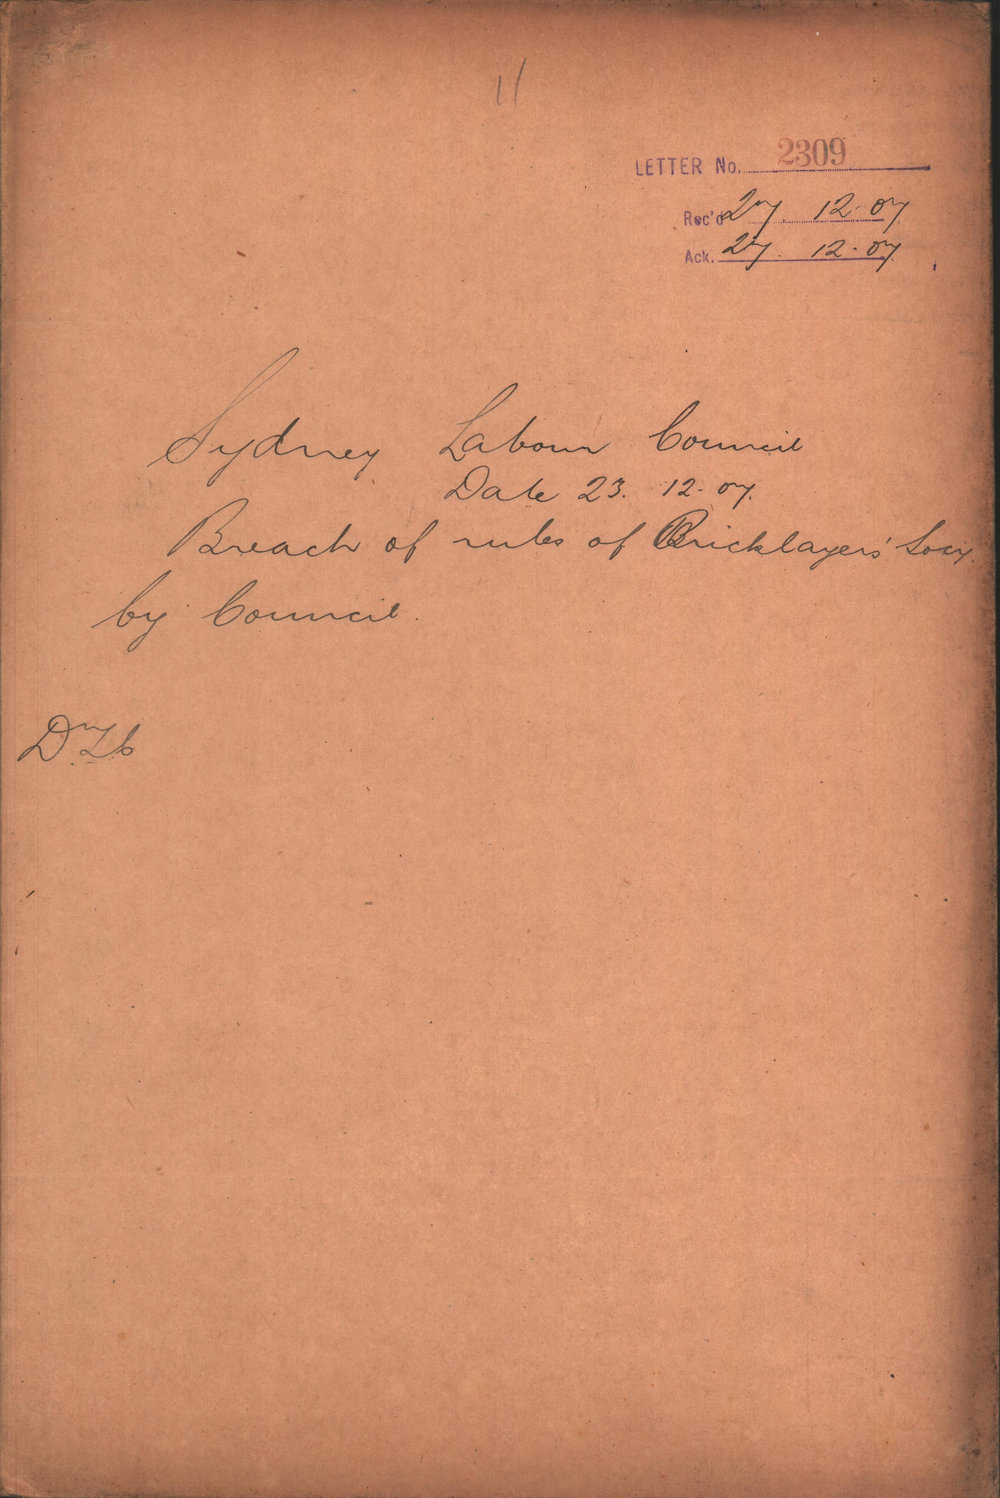 11
LETTER No. 2309
Rec'd 27. 12. 07.
Ack. 27. 12. 07.
Sydney Labour Council
Date 23. 12. 07.
Breach of rules of Bricklayers' Socy.
by Council.